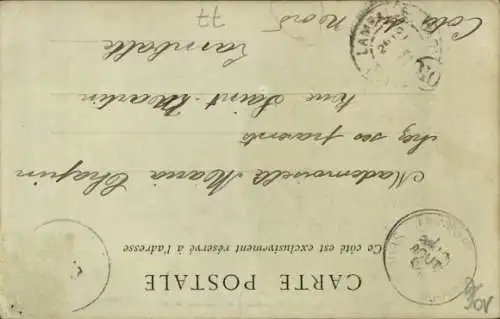 CARTE POSTALE
Ce côté est exclusivement réservé à l'adresse
Mademoiselle Maria Chapin
chez ses parents
rue Saint-Martin
Lamballe
Côtes du Nord
77
LAMBALLE